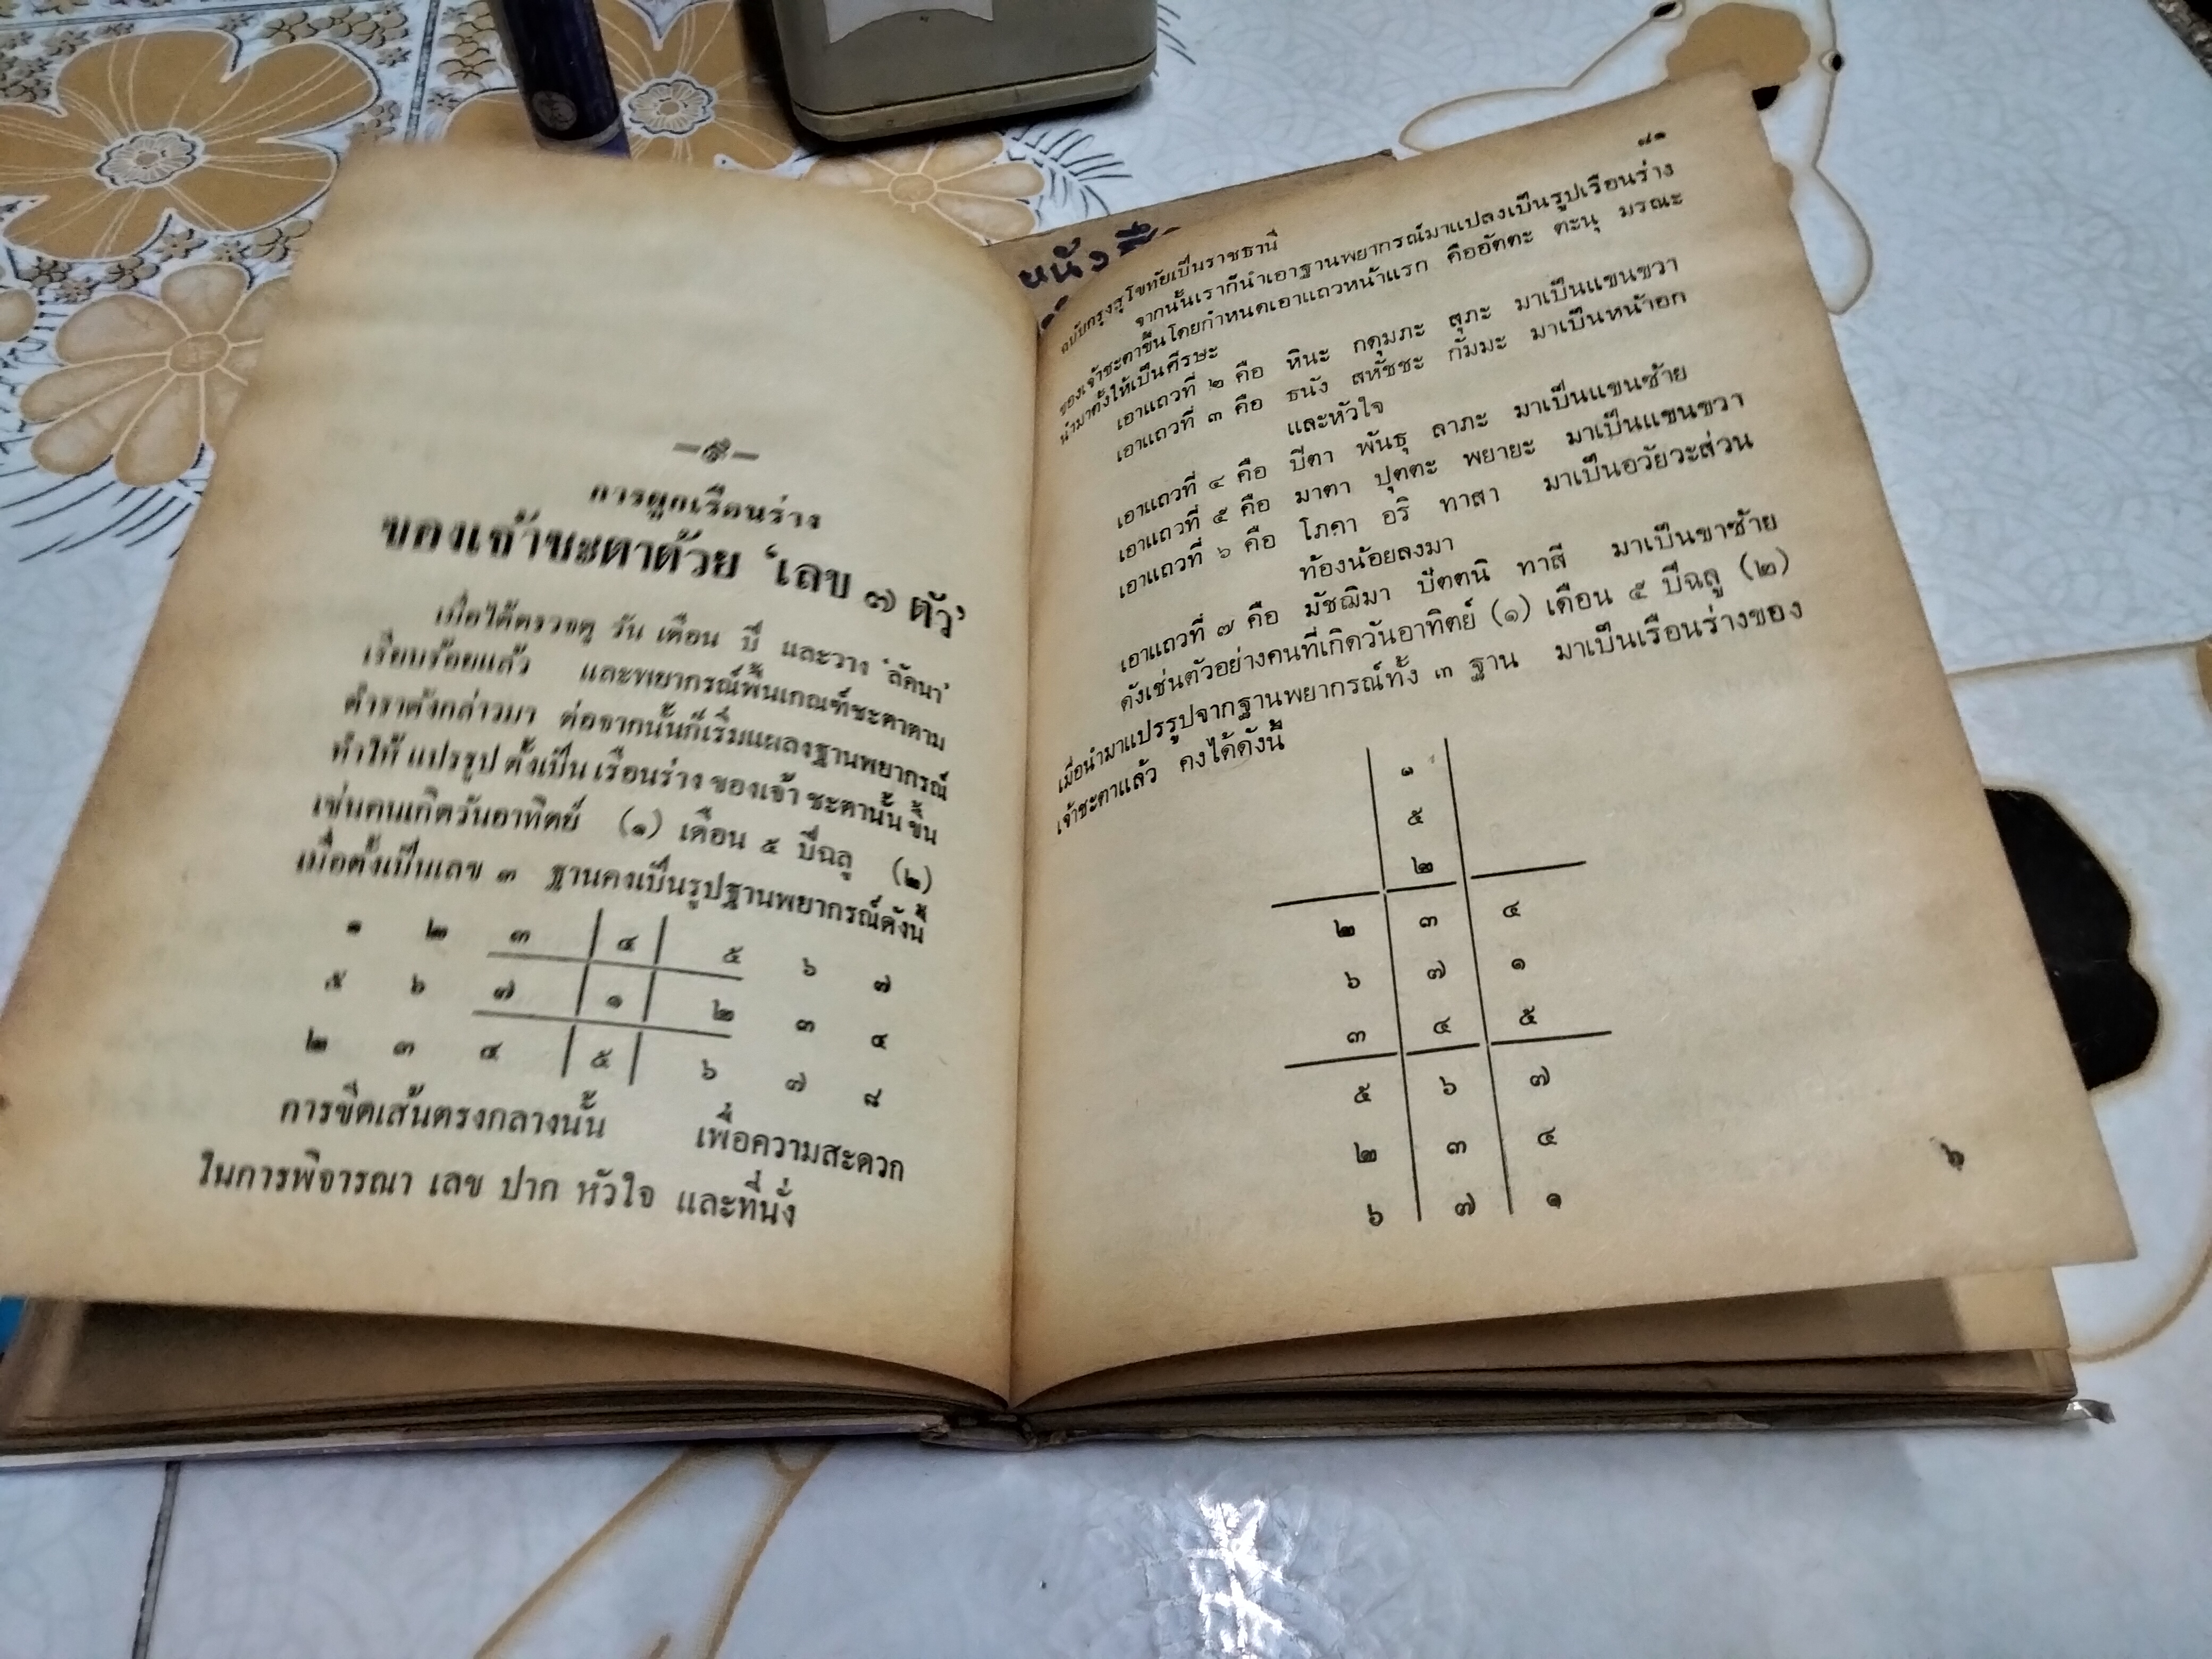 —๕—
การผูกเรือนร่าง
ของเจ้าชะตาด้วย ‘เลข ๗ ตัว’
เมื่อได้ตรวจดู วัน เดือน ปี และวาง ‘ลัคนา’
เรียบร้อยแล้ว และพยากรณ์พื้นเกณฑ์ชะตาตาม
ตำราดังกล่าวมา ต่อจากนั้นก็เริ่มแผลงฐานพยากรณ์
ทำให้ แปรรูป ตั้งเป็น เรือนร่าง ของเจ้า ชะตานั้น ขึ้น
เช่นคนเกิดวันอาทิตย์ (๑) เดือน ๕ ปีฉลู (๒)
เมื่อตั้งเป็นเลข ๓ ฐานคงเป็นรูปฐานพยากรณ์ดังนี้
๑ ๒ ๓ ๔ ๕ ๖ ๗
๕ ๖ ๗ ๑ ๒ ๓ ๔
๒ ๓ ๔ ๕ ๖ ๗ ๘
การขีดเส้นตรงกลางนั้น เพื่อความสะดวก
ในการพิจารณา เลข ปาก หัวใจ และที่นั่ง
หนังสื
๘๑
ฉบับกรุงสุโขทัยเป็นราชธานี
จากนั้นเราก็นำเอาฐานพยากรณ์มาแปลงเป็นรูปเรือนร่าง
ของเจ้าชะตาขึ้นโดยกำหนดเอาแถวหน้าแรก คืออัตตะ ตะนุ มรณะ
นำมาตั้งให้เป็นศีรษะ
เอาแถวที่ ๒ คือ หินะ กดุมภะ สุภะ มาเป็นแขนขวา
เอาแถวที่ ๓ คือ ธนัง สหัชชะ กัมมะ มาเป็นหน้าอก
และหัวใจ
เอาแถวที่ ๔ คือ ปีตา พันธุ ลาภะ มาเป็นแขนซ้าย
เอาแถวที่ ๕ คือ มาตา ปุตตะ พยายะ มาเป็นแขนขวา
เอาแถวที่ ๖ คือ โภคา อริ ทาสา มาเป็นอวัยวะส่วน
ท้องน้อยลงมา
เอาแถวที่ ๗ คือ มัชฌิมา ปัตตนิ ทาสี มาเป็นขาซ้าย
ดังเช่นตัวอย่างคนที่เกิดวันอาทิตย์ (๑) เดือน ๕ ปีฉลู (๒)
เมื่อนำมาแปรรูปจากฐานพยากรณ์ทั้ง ๓ ฐาน มาเป็นเรือนร่างของ
เจ้าชะตาแล้ว คงได้ดังนี้
๑
๕
๒
๒ ๓ ๔
๖ ๗ ๑
๓ ๔ ๕
๕ ๖ ๗
๒ ๓ ๔
๖ ๗ ๑
๖